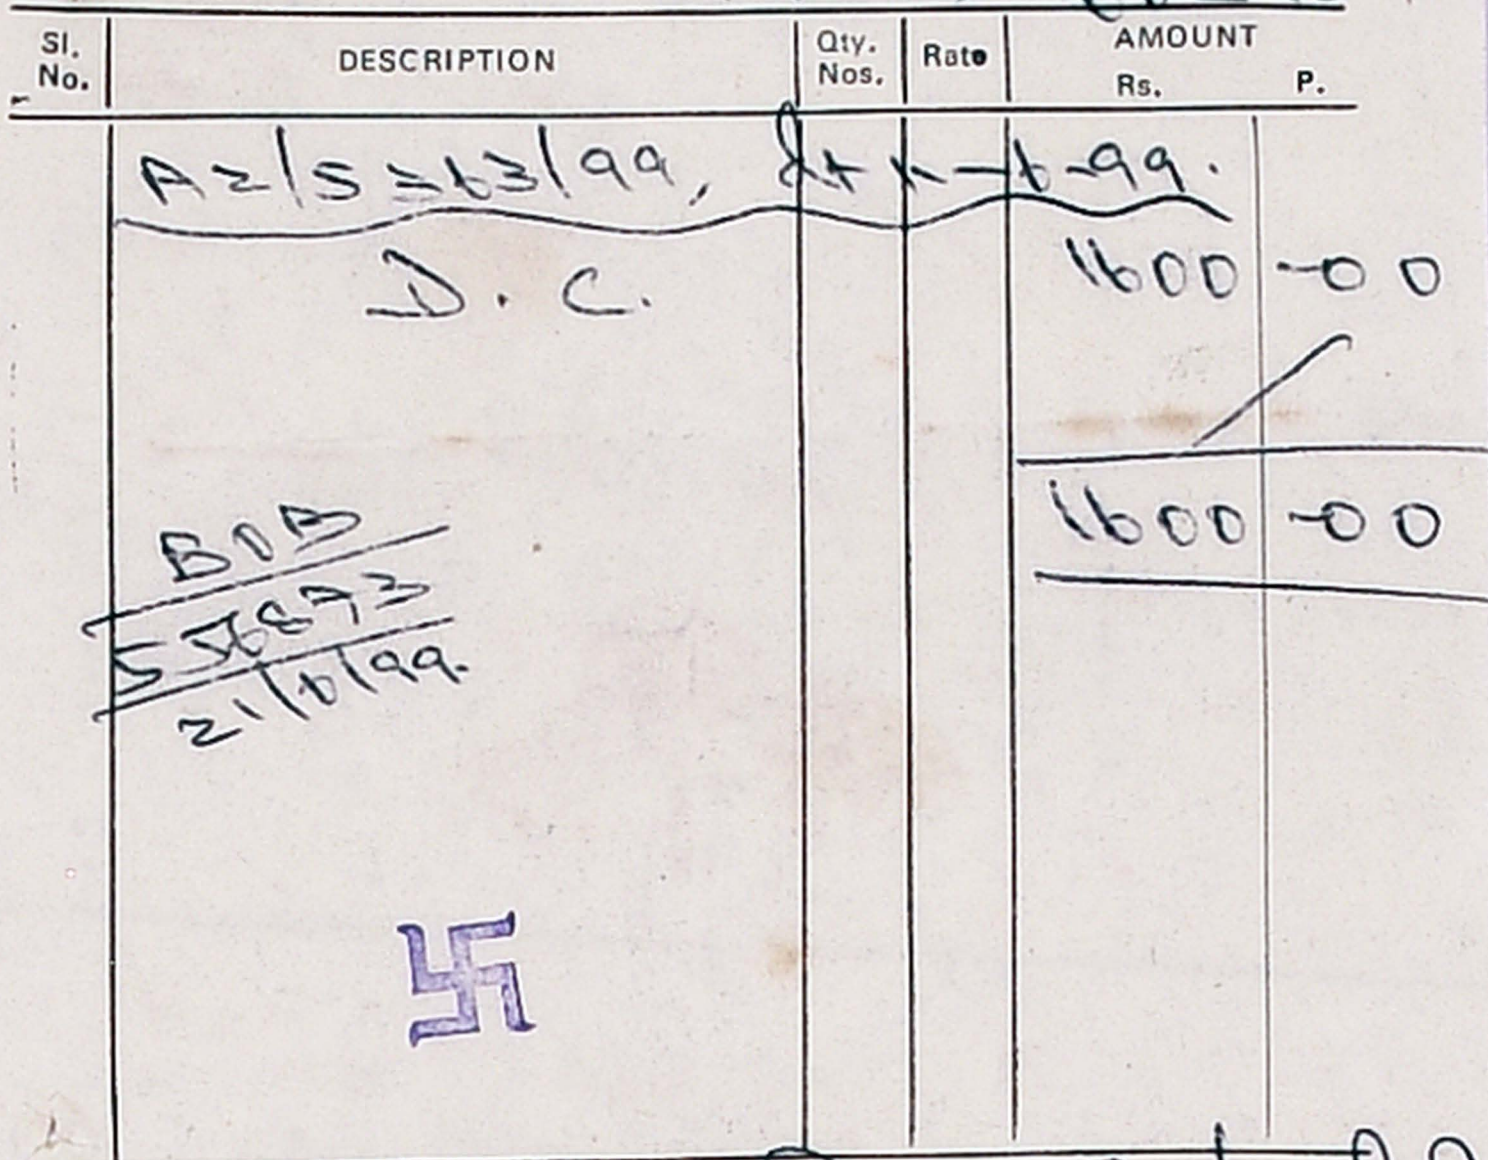 Sl. No. DESCRIPTION Qty. Nos. Rate AMOUNT Rs. P.
99.
D. C. 1600 -00
1600 -00
BOB
556873
21/6/99.